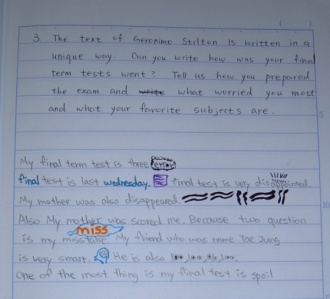 3. The text of Geronimo Stilton is written in a
unique way. Can you write how was your final
term tests went? Tell us how you prepared
the exam and what worried you most
and what your favorite subjects are.
My final term test is three
final test is last wednesday. final test is very disappointed.
My mother was also disappeared.
Also My mother was scared me. Because two question
is my miss take. My friend who was name Joe Jung
is very smart. He is also
One of the most thing is my final test is spoil